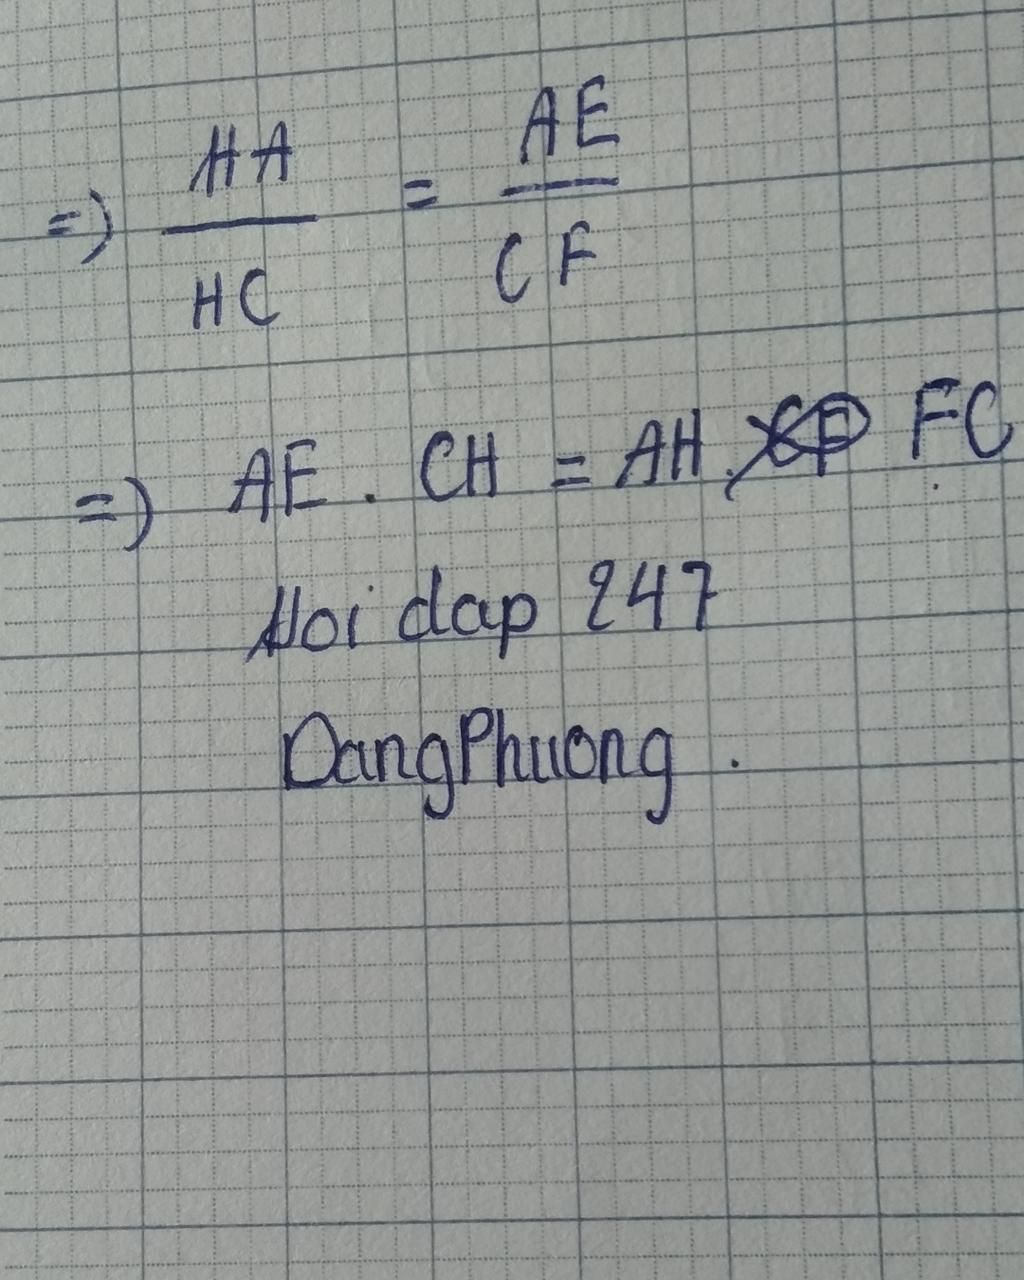 => HA/HC = AE/CF
=> AE . CH = AH . FC
Hoi dap 247
DangPhuong .